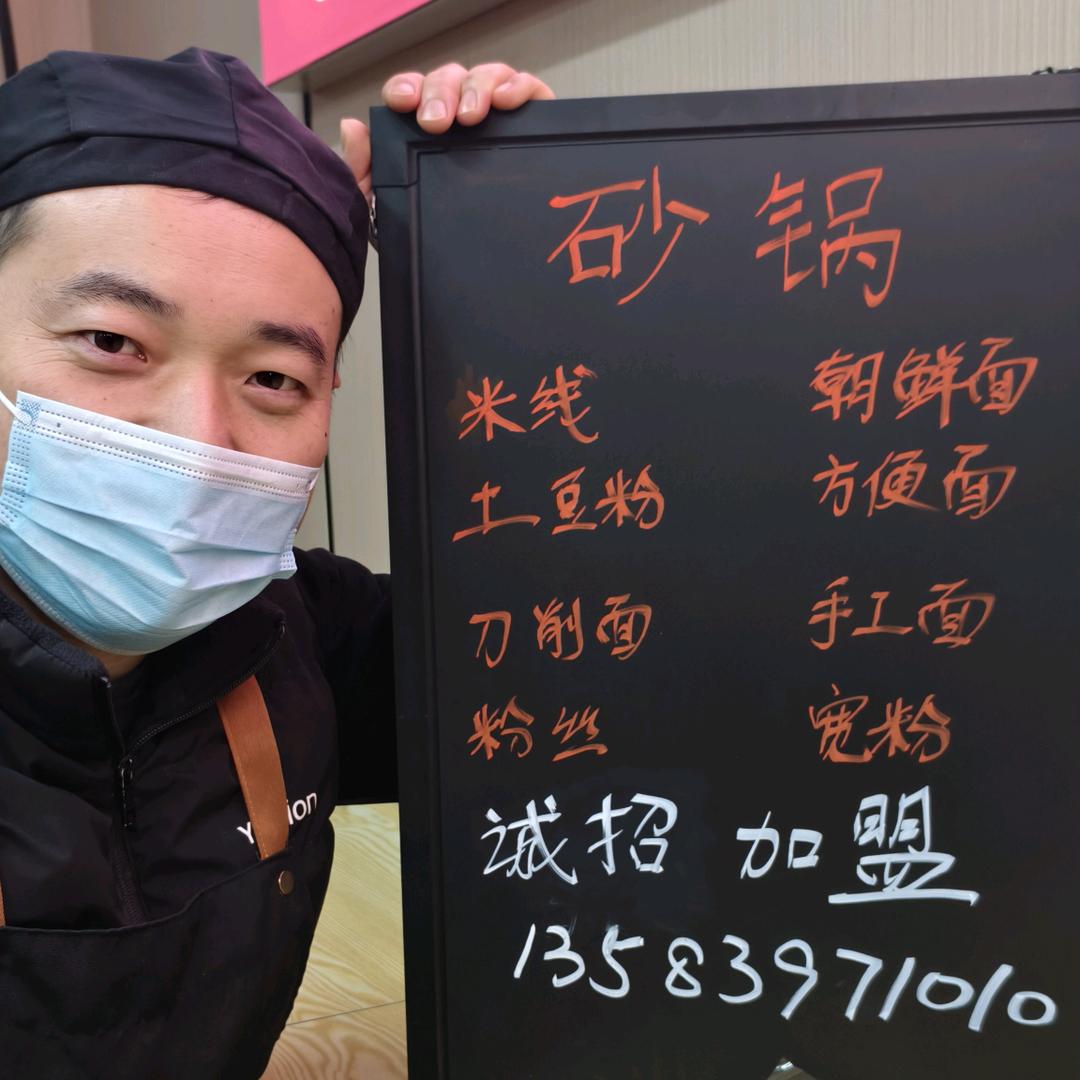 砂锅
米线 朝鲜面
土豆粉 方便面
刀削面 手工面
粉丝 宽粉
诚招 加盟
13583971010